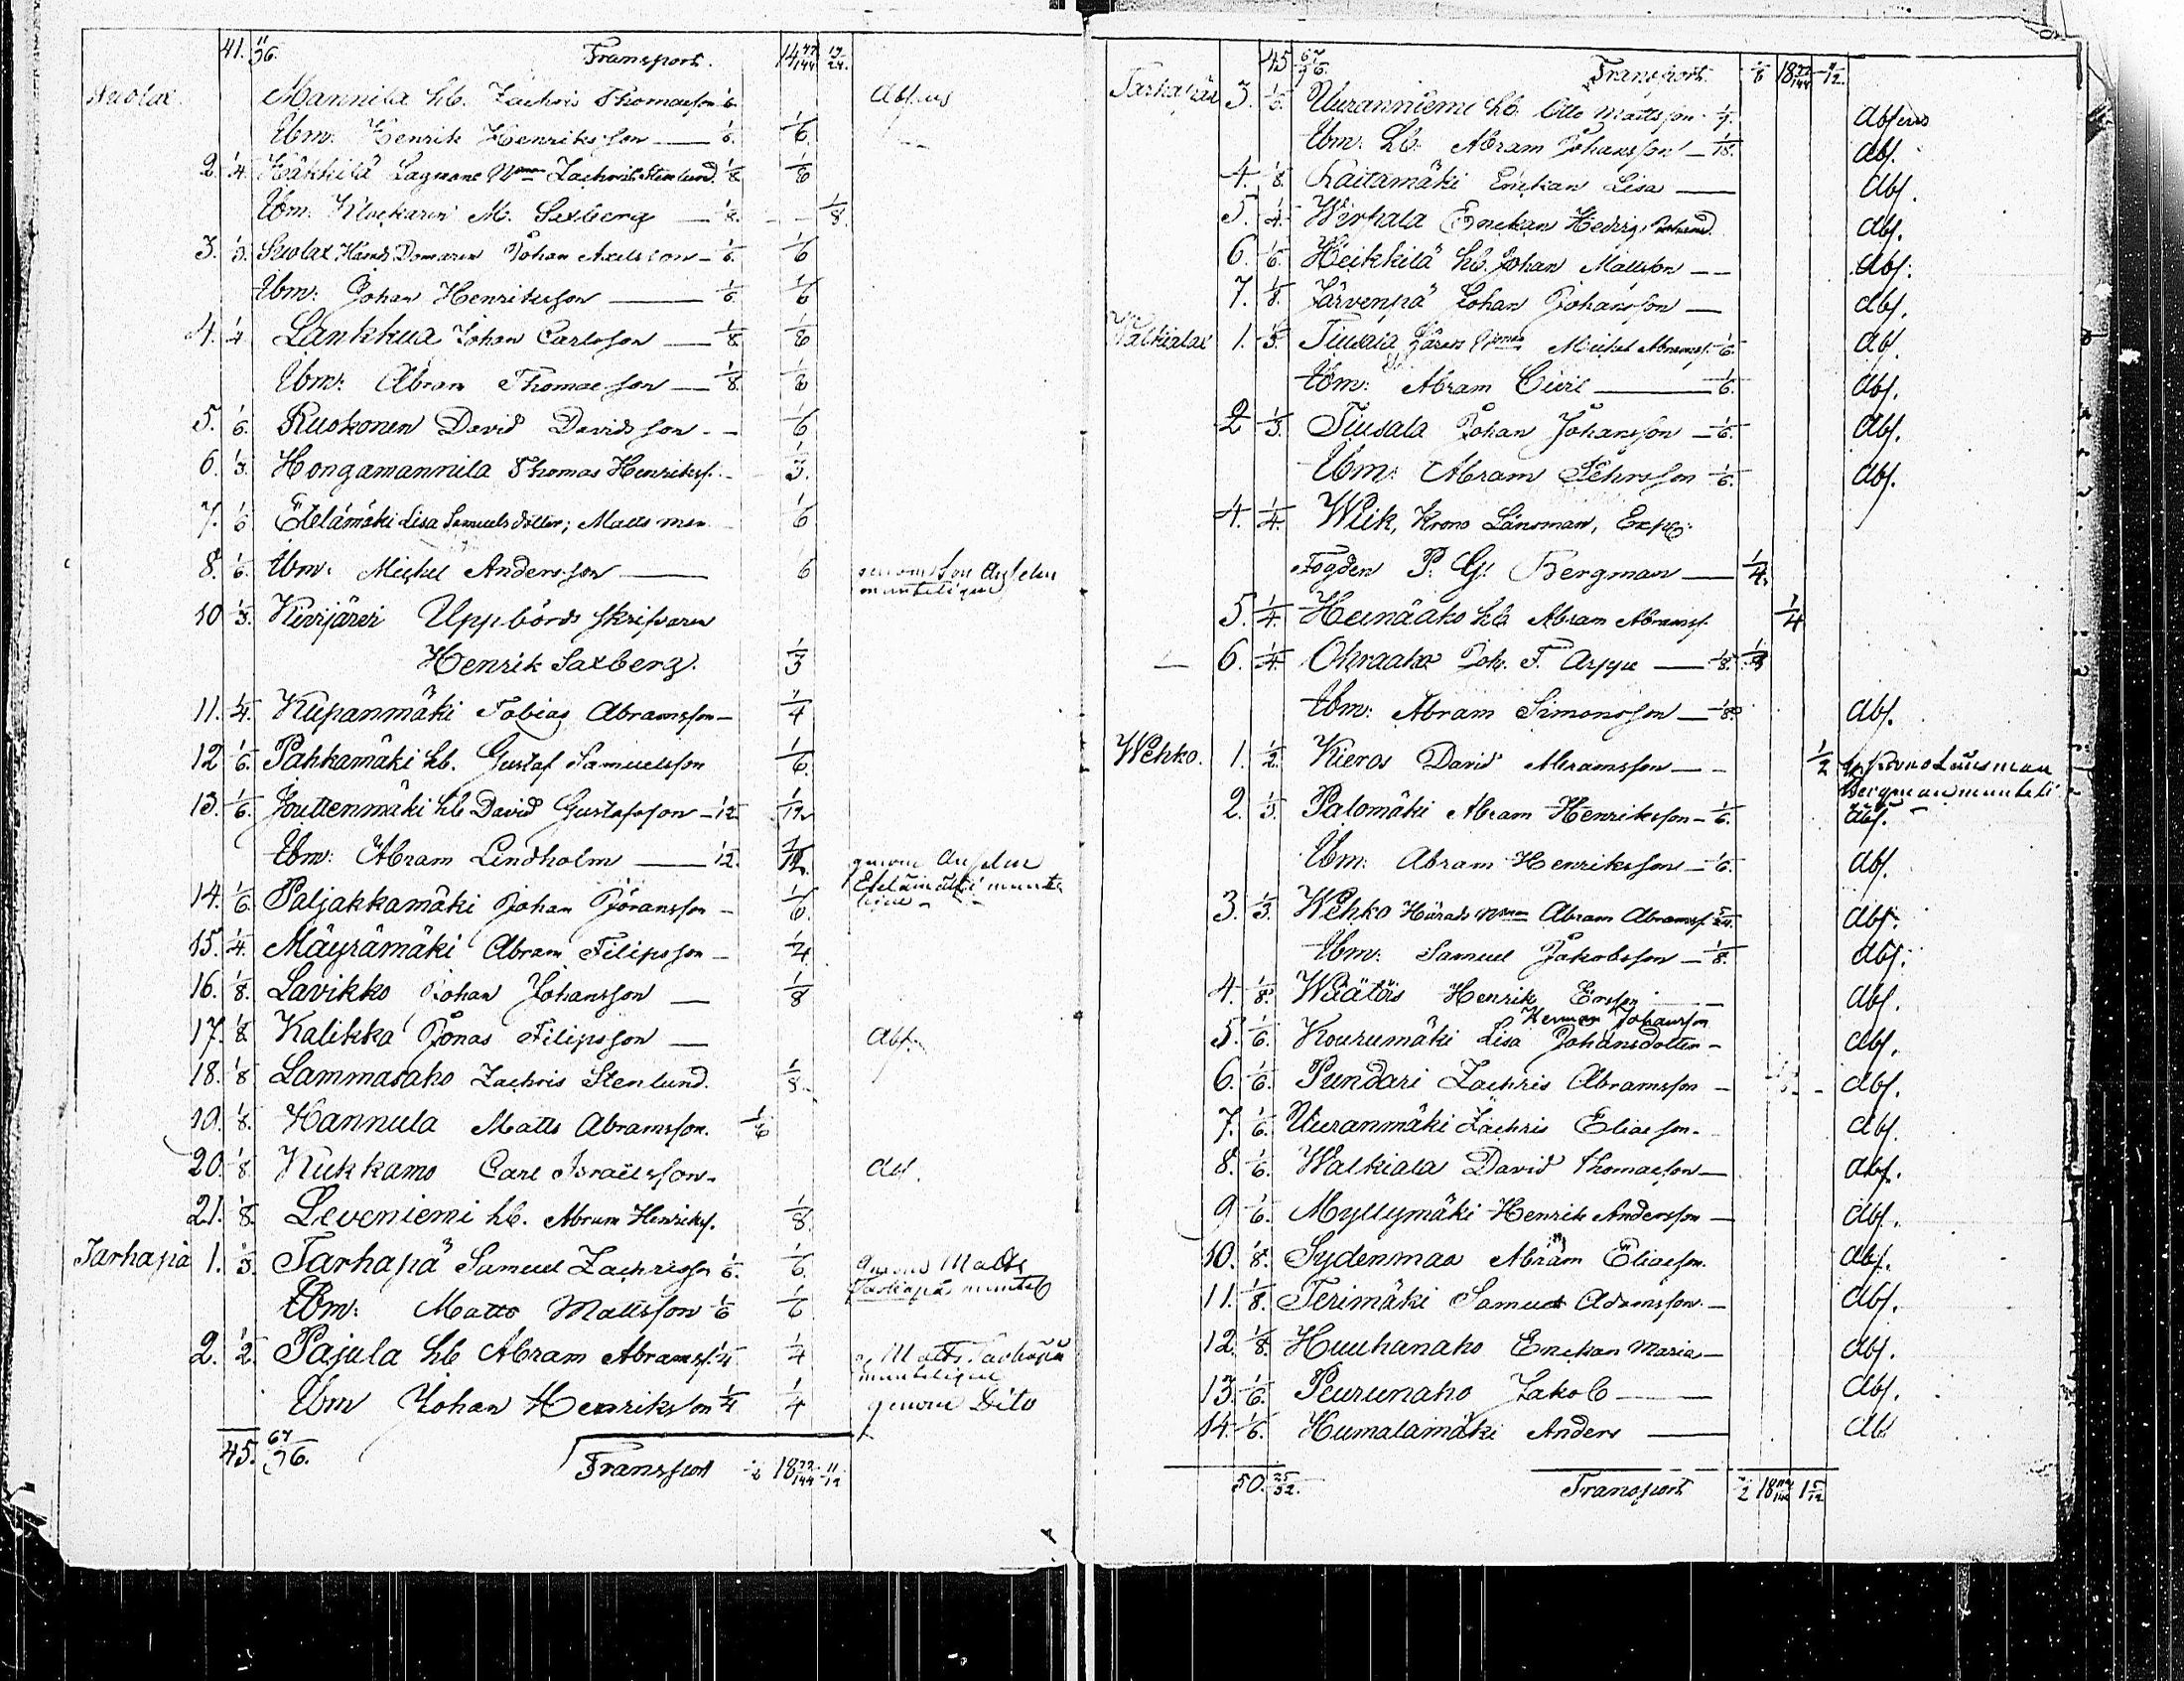 41. 11/36. Transport. 14 77/144 19/24.
Suolax. Mannila hb. Zachris Thomasson 1/6. Absens
Ibm: Henrik Henriksson — 1/6. 1/6
2. 1/4. Käkkilä Lagmans Zachris Stenlund. 1/8. 1/8
Ibm: Klockaren M. Saxberg — 1/8. 1/8.
3. 1/3. Suolax Härads Domaren Johan Axelsson — 1/6. 1/6
Ibm: Johan Henriksson — 1/6. 1/6
4. 1/4 Lankkua Johan Carlsson — 1/8 1/8
Ibm: Abram Thomasson — 1/8 1/8
5. 1/6. Ruokonen David Davidsson — 1/6
6. 1/3. Hongamannila Thomas Henrikss. 1/3.
7. 1/6 Etelämäki Lisa Samuelsdotter; Matts 1/6
8. 1/6. Ibm: Michel Andersson — 6 genom Anselm munteligen
10 1/3. Kivijärvi Uppbörds skrifvaren
Henrik Saxberg. 1/3
11. 1/4. Kupanmäki Tobias Abramsson — 1/4
12 1/6. Pahkamäki hb. Gustaf Samuelsson 1/6.
13. 1/6. Juttenmäki hb David Gustafsson — 1/12. 1/12
Ibm: Abram Lindholm — 1/12. 1/12. genom Anselm
14. 1/6. Paljakkamäki Johan Göransson — 1/6. Etelämäki munteligen
15. 1/4. Mäyrämäki Abram Filipsson — 1/4
16. 1/8. Lavikko Johan Johansson — 1/8
17. 1/8 Kalikka Jonas Filipsson — Abs.
18. 1/8 Lammasaho Zachris Stenlund. 1/8.
19. 1/8. Hannula Matts Abramsson. 1/6
20. 1/8 Kukkamo Carl Israëlsson. Abs.
21. 1/8. Leveniemi hb. Abram Henrikss. 1/8.
Tarhapä 1. 1/3. Tarhapä Samuel Zachrisson 1/6. 1/6. genom Matts
Ibm: Matts Mattsson 1/6 1/6 Tarhapää muntel
2. 1/2. Pajula hb Abram Abramss. 1/4 1/4 g Matts Tarhapää munteligen
Ibm Johan Henriksson 1/4 1/4 genom Dito
45. 67/76. Transport 18 77/144 11/12
45 67/76. Transport. 1/6 18 77/144 11/12.
Tarhapää 3. 1/6. Uuranniemi hb. Otto Mattsson Absens
Ibm: hb. Abram Johansson — 1/18. Abs.
4. 1/8. Raitamäki Enckan Lisa — Abs.
5. 1/4. Wirhala Enckan Hedvig Abs.
6. 1/6. Heikkilä hb. Johan Mattsson — Abs.
7. 1/8. Järvenpä Johan Johansson — Abs.
Walkialax 1. 1/3. Tiusala Michel Abramss. 1/6. Abs.
Ibm: Abram — 1/6. Abs.
2 1/3. Tiusala Johan Johansson — 1/6. Abs.
Ibm: Abram — 1/6. Abs.
4. 1/4. Wiik, Krono Länsman, Exp.
Fogden P. G. Bergman — 1/4.
5. 1/4. Heinäaho hb. Abram Abramss. 1/4
6. 1/4. Ohraaho Joh. F. Arppe — 1/8. 1/8
Ibm: Abram Simonsson — 1/8. Abs.
Wehko. 1. 1/2. Kieros David Abramsson — 1/2 g. Krono Länsman Bergman munteli
2. 1/3. Palomäki Abram Henriksson — 1/6. Abs.
Ibm: Abram Henriksson — 1/6. Abs.
3. 1/3. Wehko Härads Abram Abramss. 5/24. Abs.
Ibm: Samuel Jakobsson — 1/8. Abs.
4. 1/8. Wäätäs Henrik Ersson — Abs.
Herman Johansson
5. 1/6. Kourumäki Lisa Johansdotter — Abs.
6. 1/6. Pundari Zachris Abramsson — Abs.
7. 1/6. Uuranmäki Zachris Eliasson. Abs.
8. 1/6. Walkiala David Thomasson — Abs.
9 1/6. Myllymäki Henrik Andersson — Abs.
10. 1/8. Sydenmaa Abram Eliasson. Abs.
11. 1/8. Terimäki Samuel Adamsson — Abs.
12. 1/8. Huuhanaho Enckan Maria — Abs.
13. 1/6. Peurunaho Jakob — Abs.
14. 1/6. Humalamäki Anders — Abs
50. 25/52. Transport 1/2 18 1 5/12